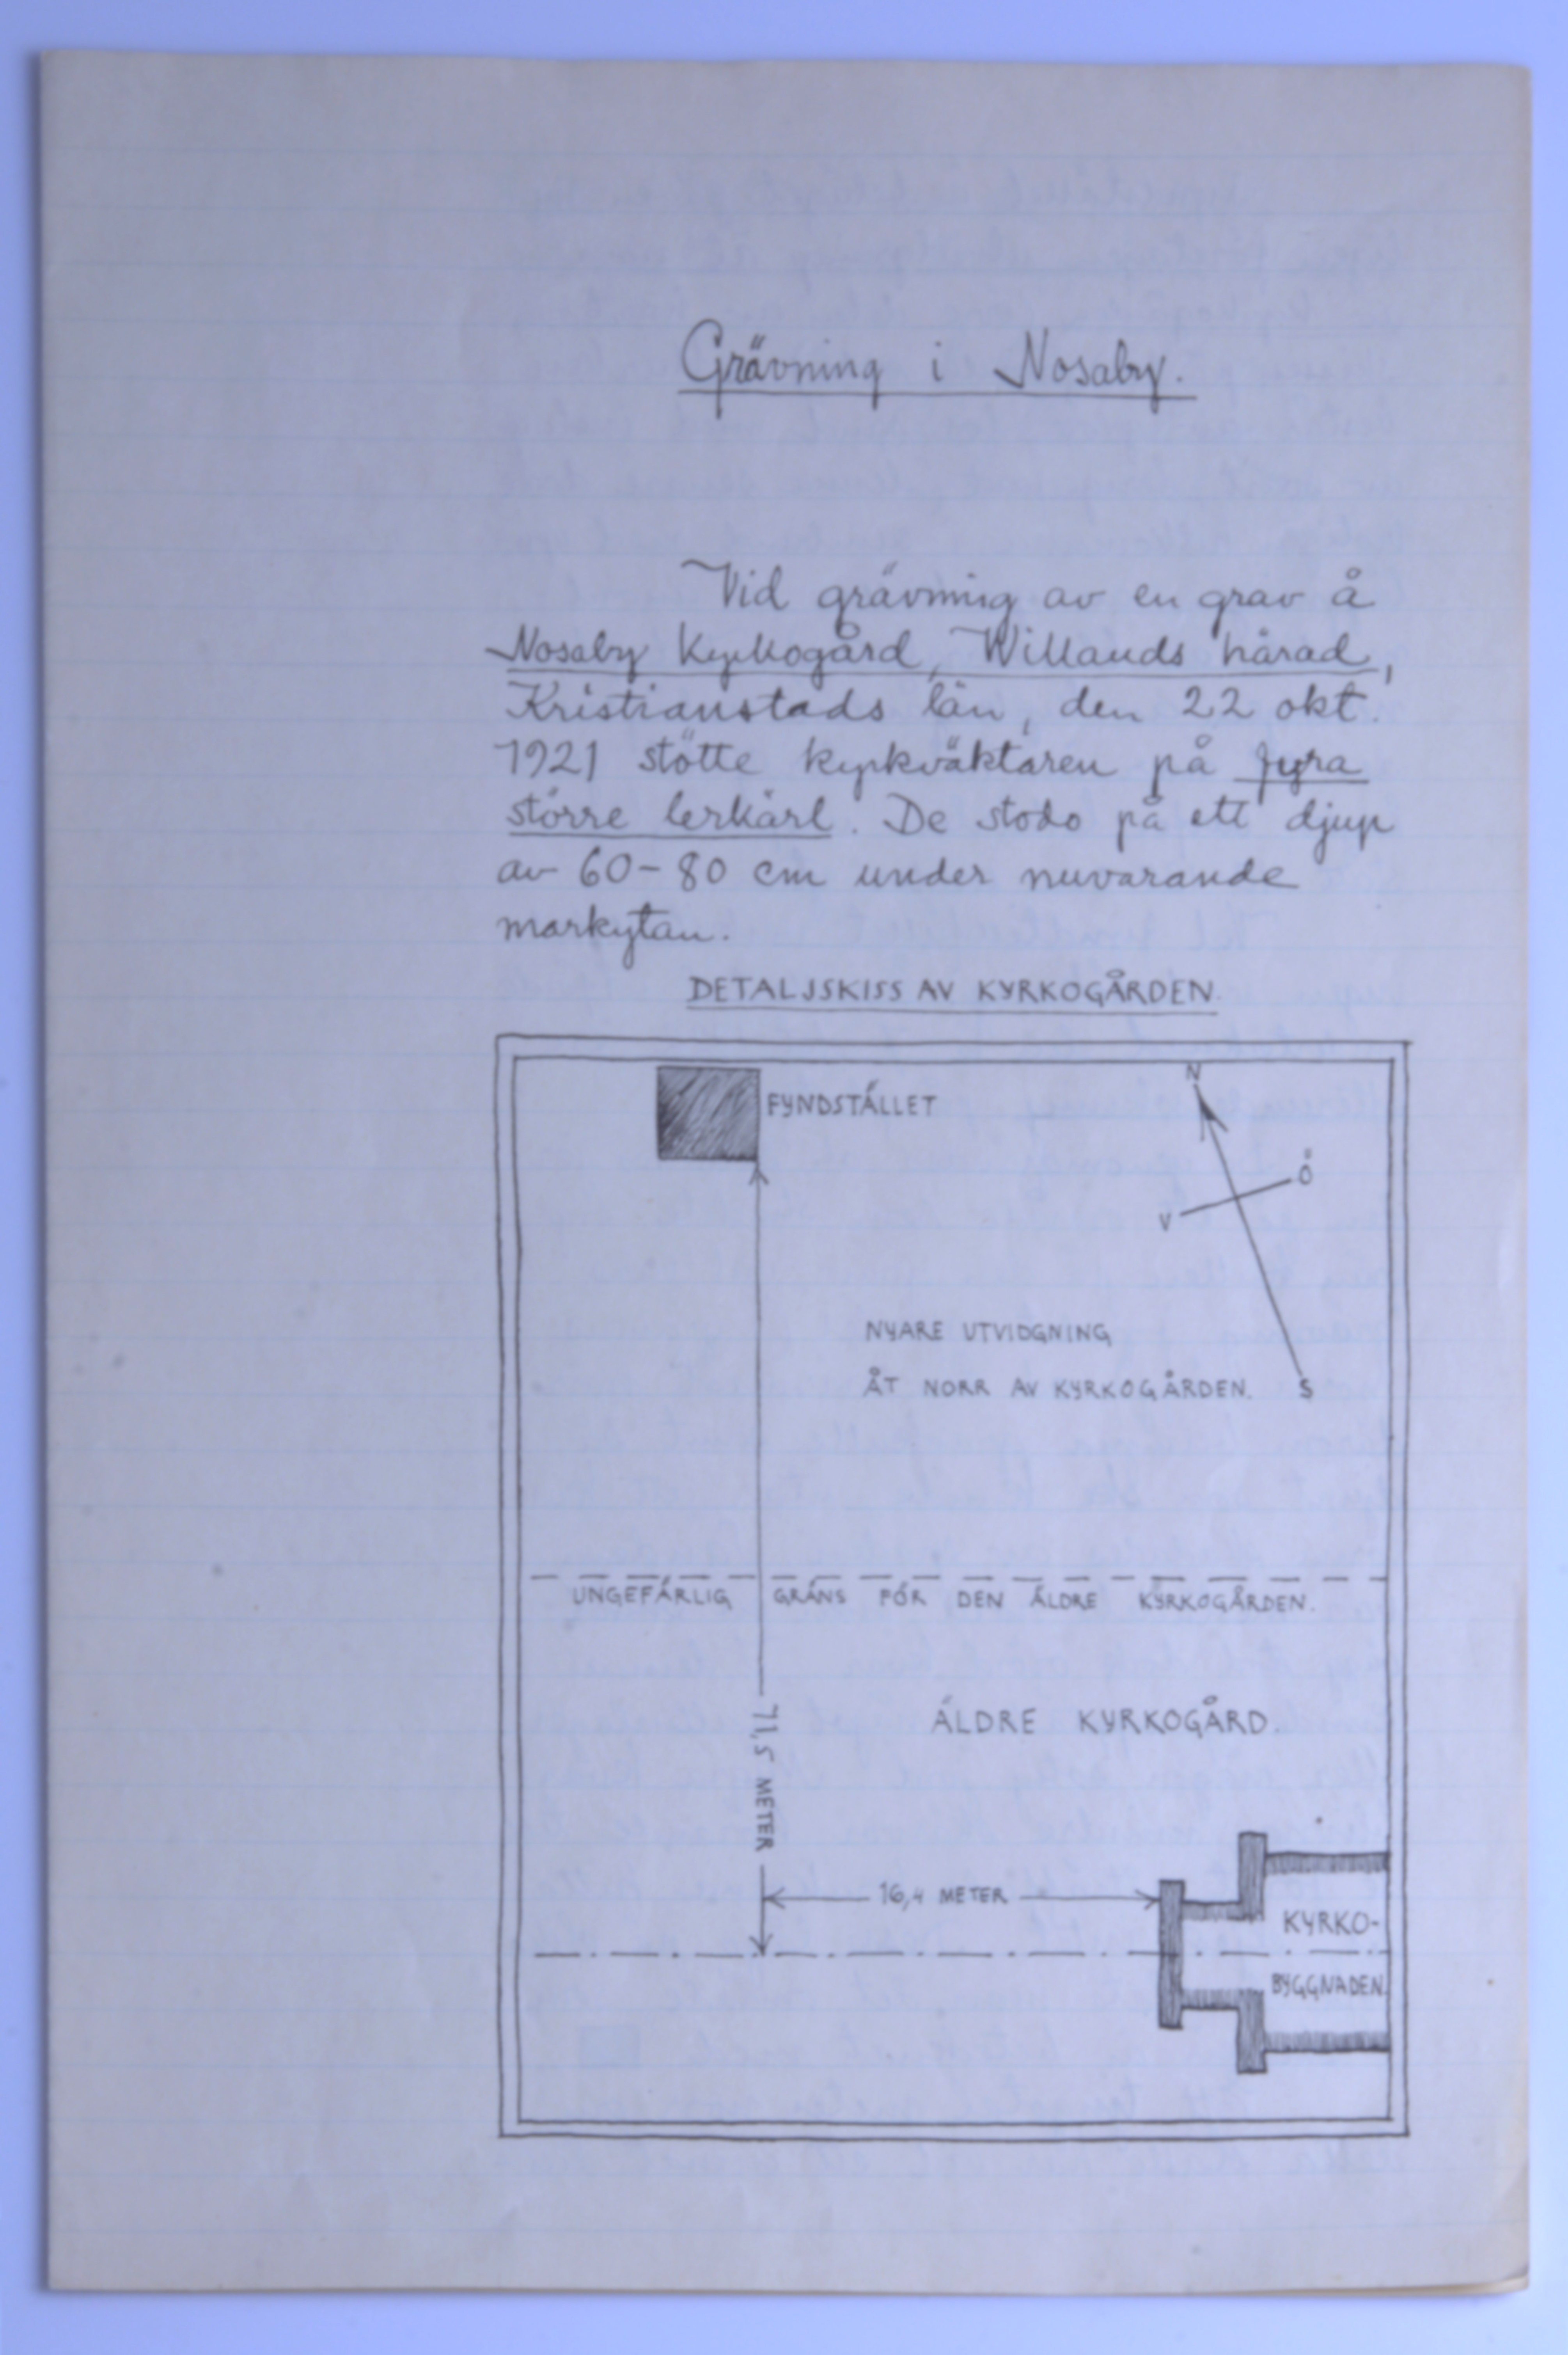 Grävning i Nosaby.
Vid grävning av en grav å
Nosaby Kyrkogård, Willands härad,
Kristianstads län, den 22 okt.
1921 stötte kyrkväktaren på fyra
större lerkärl. De stodo på ett djup
av 60-80 cm under nuvarande
markytan.
DETALJSKISS AV KYRKOGÅRDEN.
FYNDSTÄLLET
N
Ö
V
S
NYARE UTVIDGNING
ÅT NORR AV KYRKOGÅRDEN.
UNGEFÄRLIG GRÄNS FÖR DEN ÄLDRE KYRKOGÅRDEN.
ÄLDRE KYRKOGÅRD.
71,5 METER
16,4 METER
KYRKO-
BYGGNADEN.